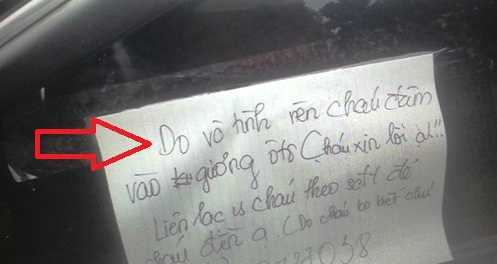 Do vô tình nên cháu đâm
vào gương ôtô Cháu xin lỗi ạ!..
Liên lạc vs cháu theo số đt đó
cháu đền ạ (Do cháu ko biết chủ
27038